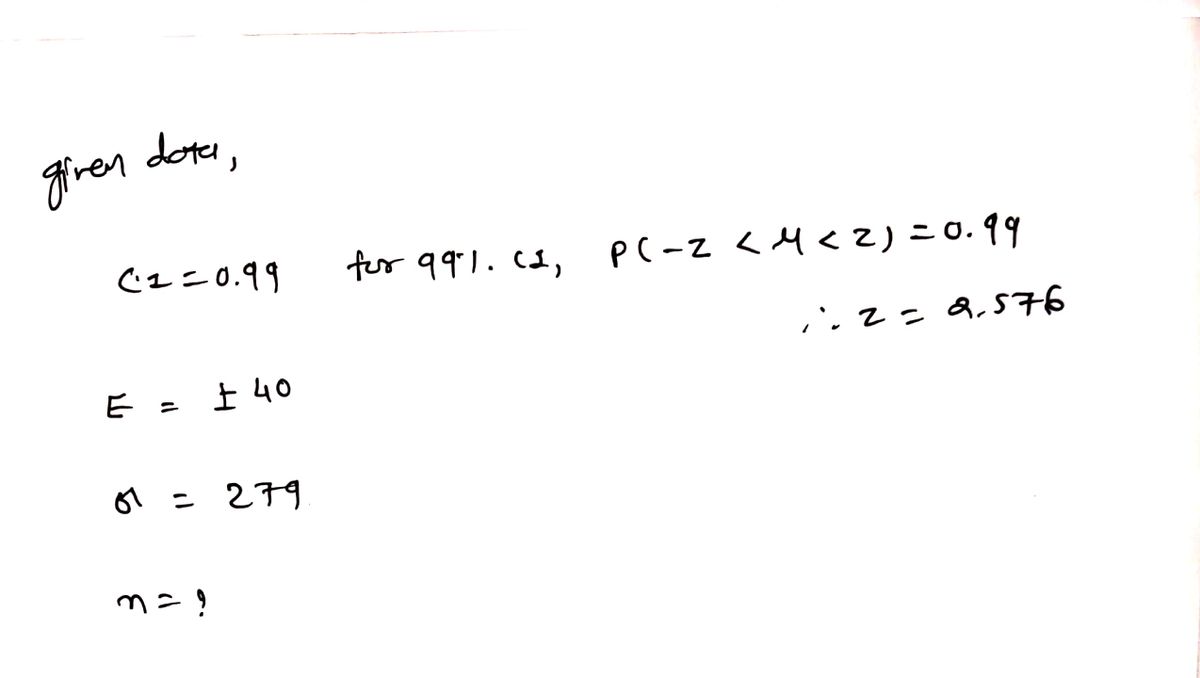 given data,
C.I = 0.99 for 99%. CI, P(-Z < M < Z) = 0.99
∴ Z = 2.576
E = ± 40
σ = 279
n = ?